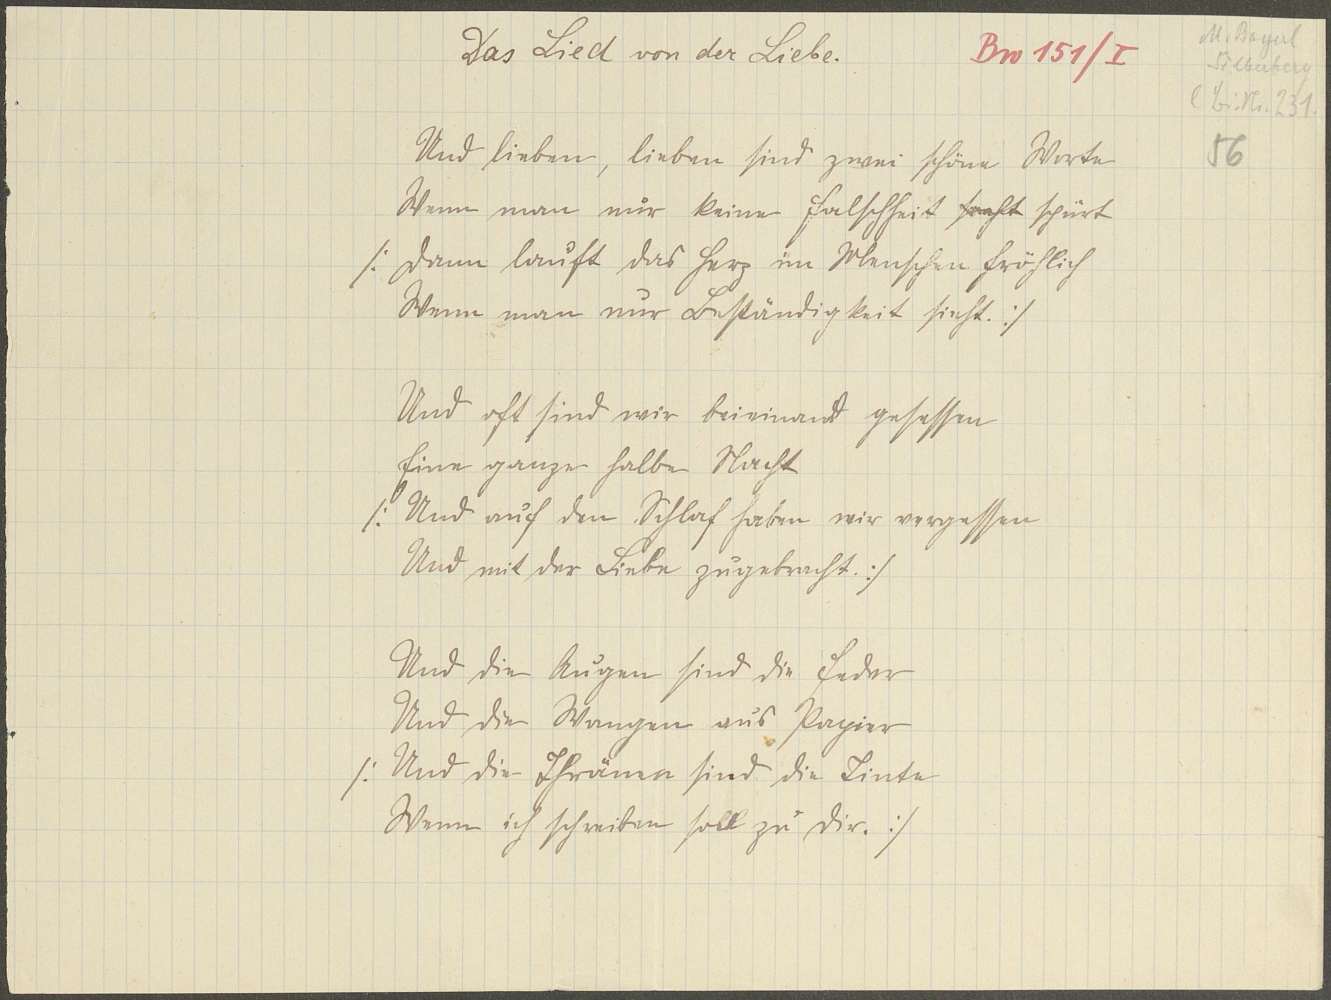 Das Lied von der Liebe.
Bw 151/I
M. Bayerl
Silberberg
Nr. 231.
56
Und lieben, lieben sind zwei schöne Worte
Wenn man nur keine Falschheit spürt
/: Dann lauft das Herz im Menschen fröhlich
Wenn man nur Beständigkeit sieht. :/
Und oft sind wir beieinand gesessen
Eine ganze halbe Nacht
/: Und auf den Schlaf haben wir vergessen
Und mit der Liebe zugebracht. :/
Und die Augen sind die Feder
Und die Wangen aus Papier
/: Und die Thränen sind die Tinte
Wenn ich schreiben soll zu dir. :/